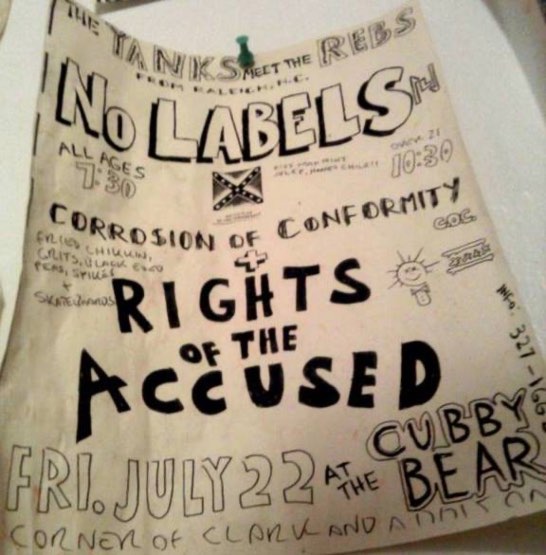 THE TANKS MEET THE REBS
FROM RALEIGH, N.C.
NO LABELS
ALL AGES
7:30
OVER 21
10:30
CORROSION OF CONFORMITY
C.O.C.
FRIED CHIKKIN,
GRITS, BLACK EYED
PEAS, SPIKES
+
SKATEBOARDS
+
RIGHTS
OF THE
ACCUSED
INFO: 327-166
FRI. JULY 22 AT THE CUBBY BEAR
CORNER OF CLARK AND ADDISON